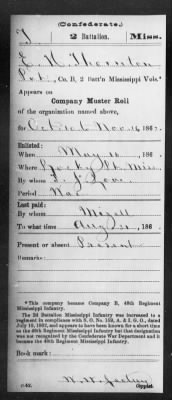 (Confederate.)
T 2 Battalion. Miss.
E. N. Thornton
Pvt., Co. B, 2 Batt'n Mississippi Vols.*
Appears on
Company Muster Roll
of the organization named above,
for Oct & Nov 16, 186 .
Enlisted:
When May 10, 186 .
Where Rocky Pt. Miss.
By whom Love
Period War
Last paid:
By whom Mizell
To what time Aug 31, 186 .
Present or absent Present
*This company became Company B, 48th Regiment
Mississippi Infantry.
The 2d Battalion Mississippi Infantry was increased to a
regiment in compliance with S. O. No. 152, A. & I. G. O., dated
July 10, 1862, and appears to have been known for a short time
as the 48th Regiment Mississippi Infantry but this designation
was not recognized by the Confederate War Department and it
became the 48th Regiment Mississippi Infantry.
Book mark:
(642) Copyist.